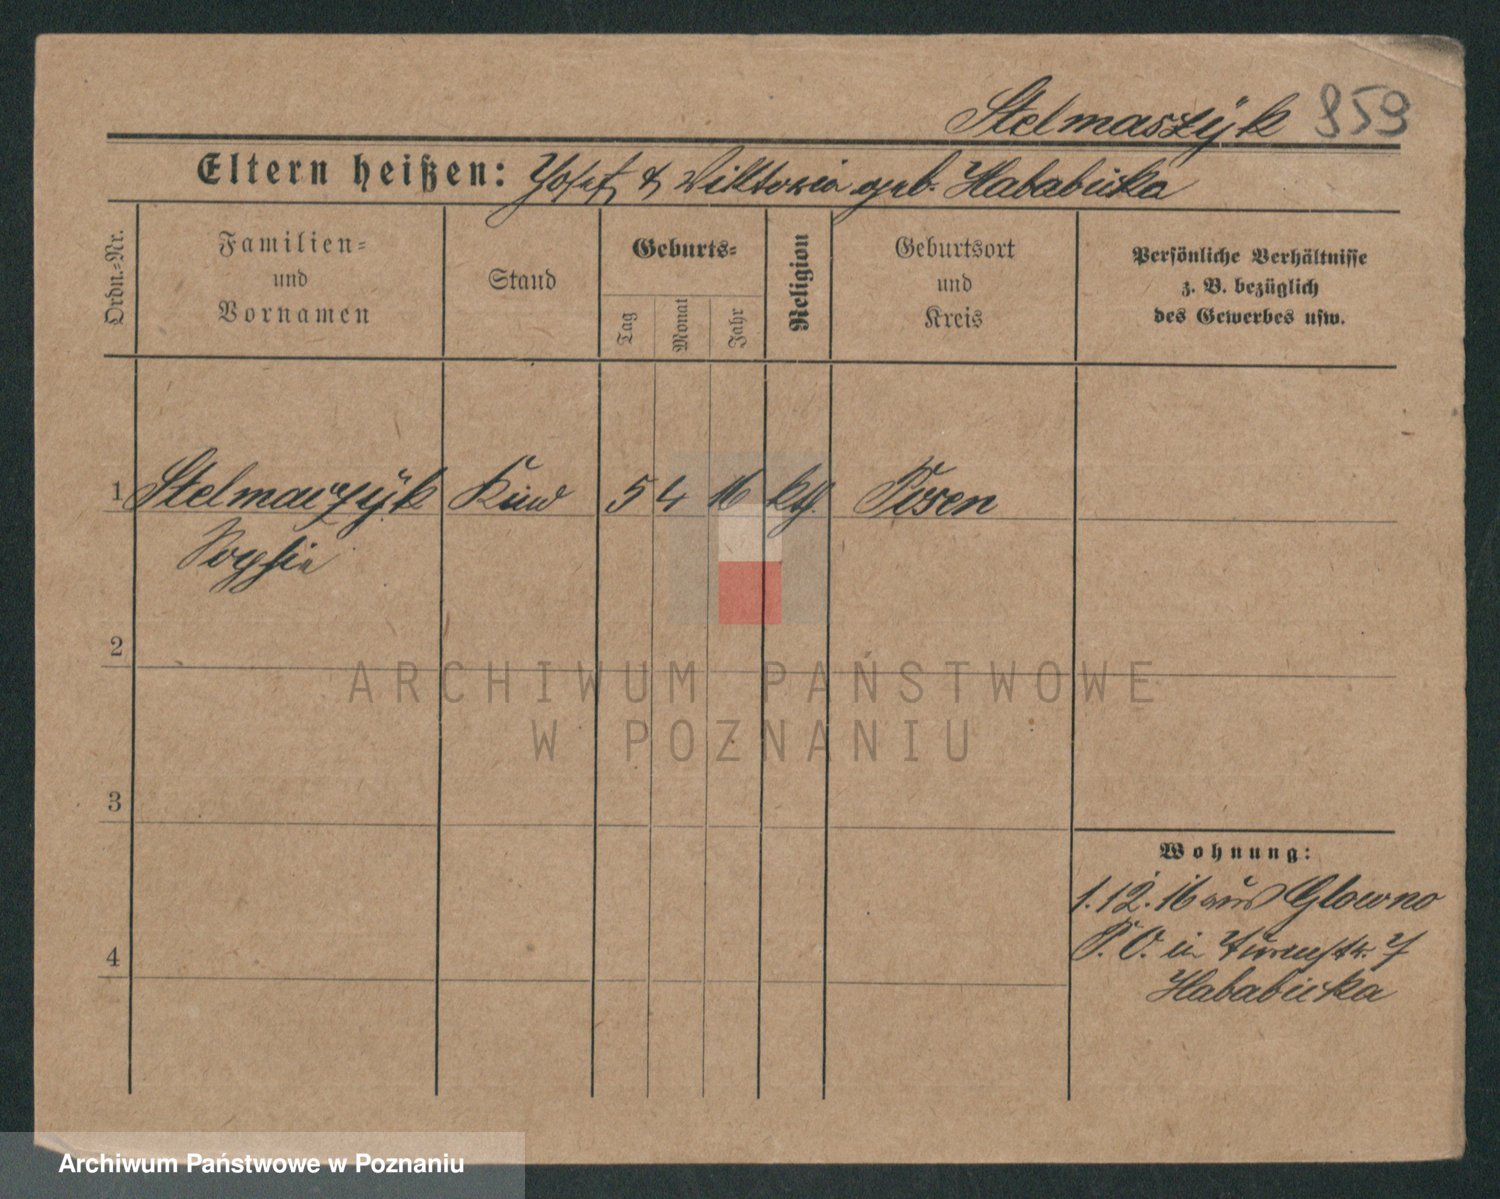 Stelmaszÿk 959
Eltern heißen: Josef & Wiktoria geb. Hababicka
Ordn.-Nr.
Familien-
und
Vornamen
Stand
Geburts-
Tag
Monat
Jahr
Religion
Geburtsort
und
Kreis
Persönliche Verhältnisse
z. B. bezüglich
des Gewerbes usw.
1 Stelmaszÿk Kind 5 4 16 ktf. Posen
Sophie
2
3
4
Wohnung:
1.12.16 aus Glowno
P. O. in
Hababicka
ARCHIWUM PAŃSTWOWE
W POZNANIU
Archiwum Państwowe w Poznaniu